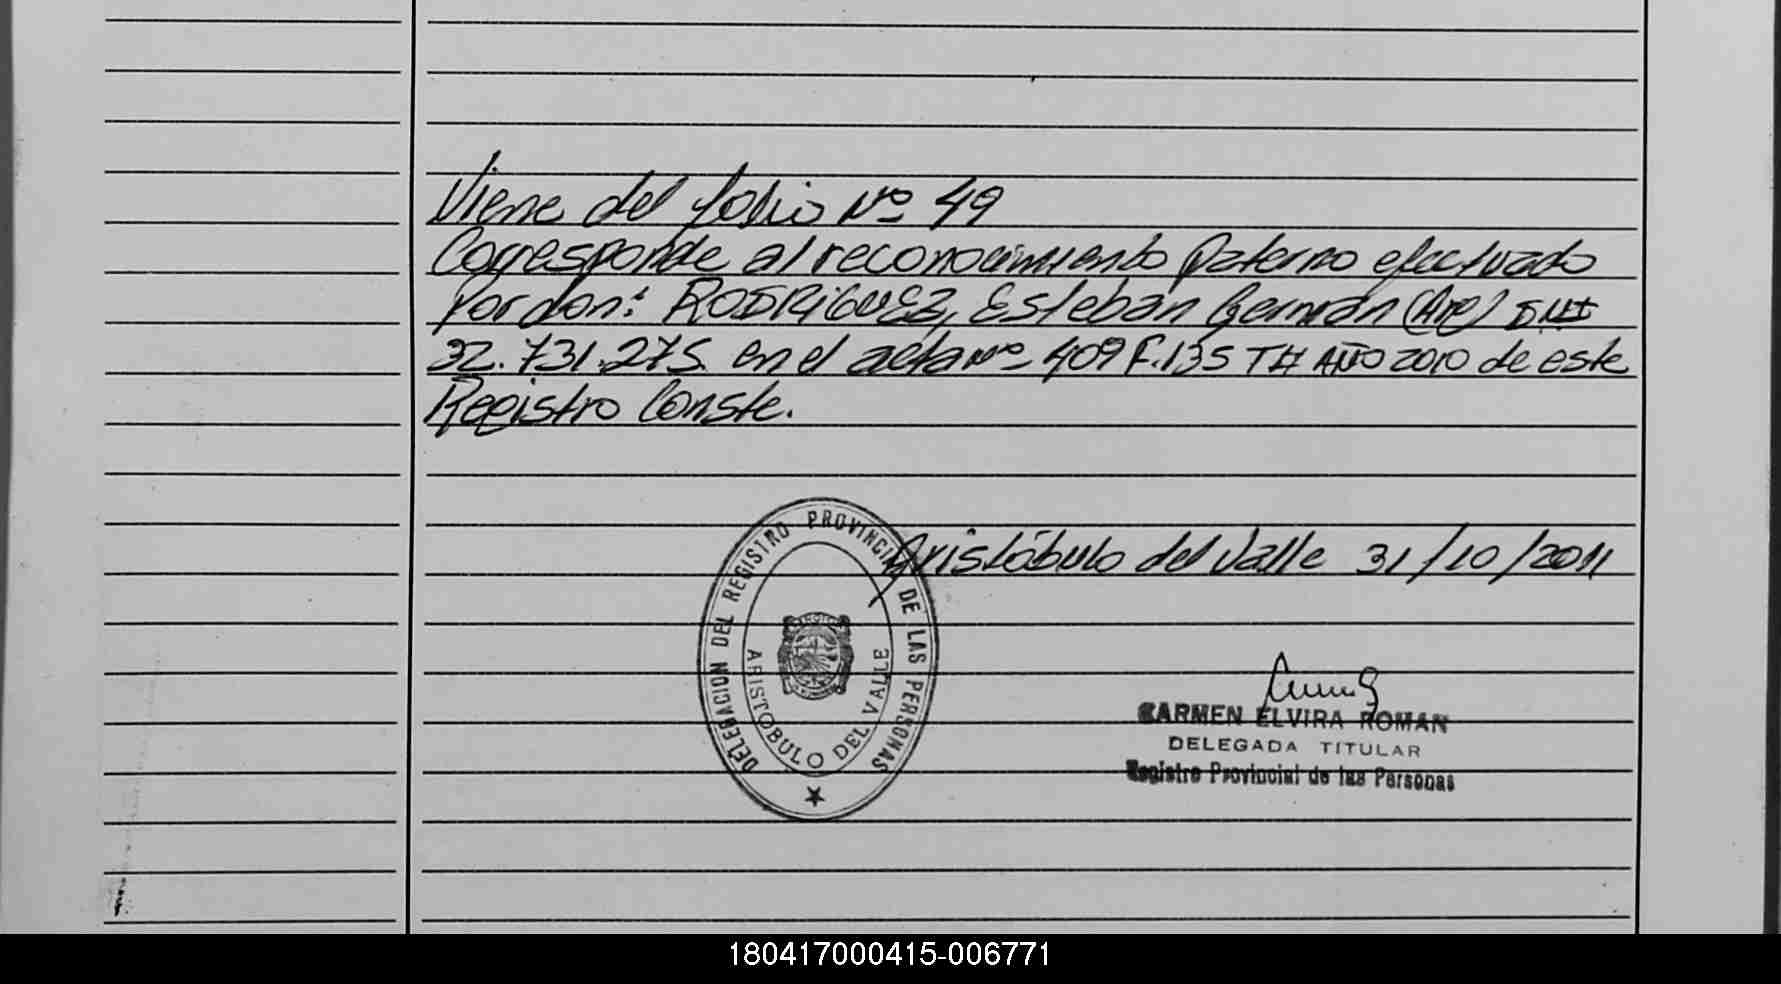 Viene del folio Nº 49
Corresponde al reconocimiento paterno efectuado
Por don: RODRIGUEZ, Esteban Germán (Arg) DNI
32.731.275. en el acta Nº 409 F.135 TII AÑO 2010 de este
Registro Conste.
Aristóbulo del Valle 31/10/2011
DELEGACION DEL REGISTRO PROVINCIAL DE LAS PERSONAS
ARISTOBULO DEL VALLE
CARMEN ELVIRA ROMAN
DELEGADA TITULAR
Registro Provincial de las Personas
180417000415-006771